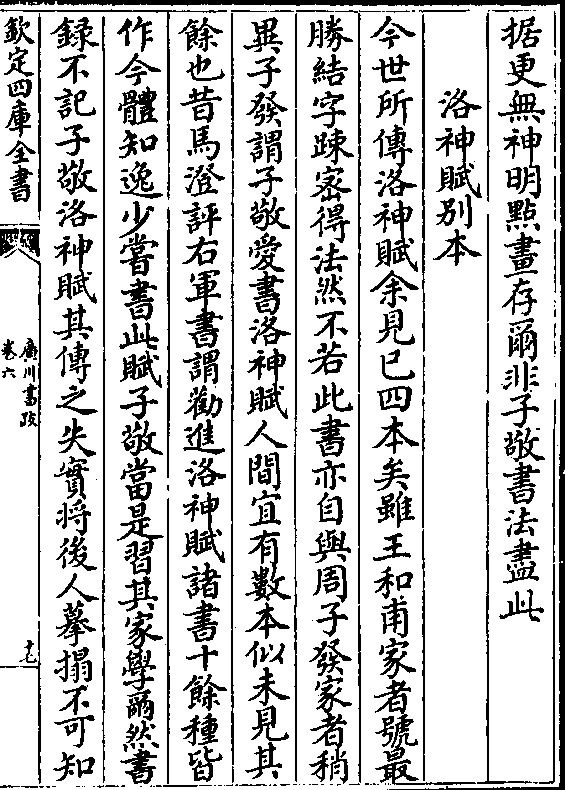 据更無神明點畫存爾非子敬書法盡此
洛神賦别本
今世所傳洛神賦余見已四本矣雖王和甫家者號最
勝結字踈宻得法然不若此書亦自與周子發家者稍
異子發謂子敬愛書洛神賦人間宜有數本似未見其
餘也昔馬澄評右軍書謂勸進洛神賦諸書十餘種皆
作今體知逸少嘗書此賦子敬當是習其家學爾然書
録不記子敬洛神賦其傳之失實将後人摹搨不可知
欽定四庫全書
廣川書跋
卷六
十七